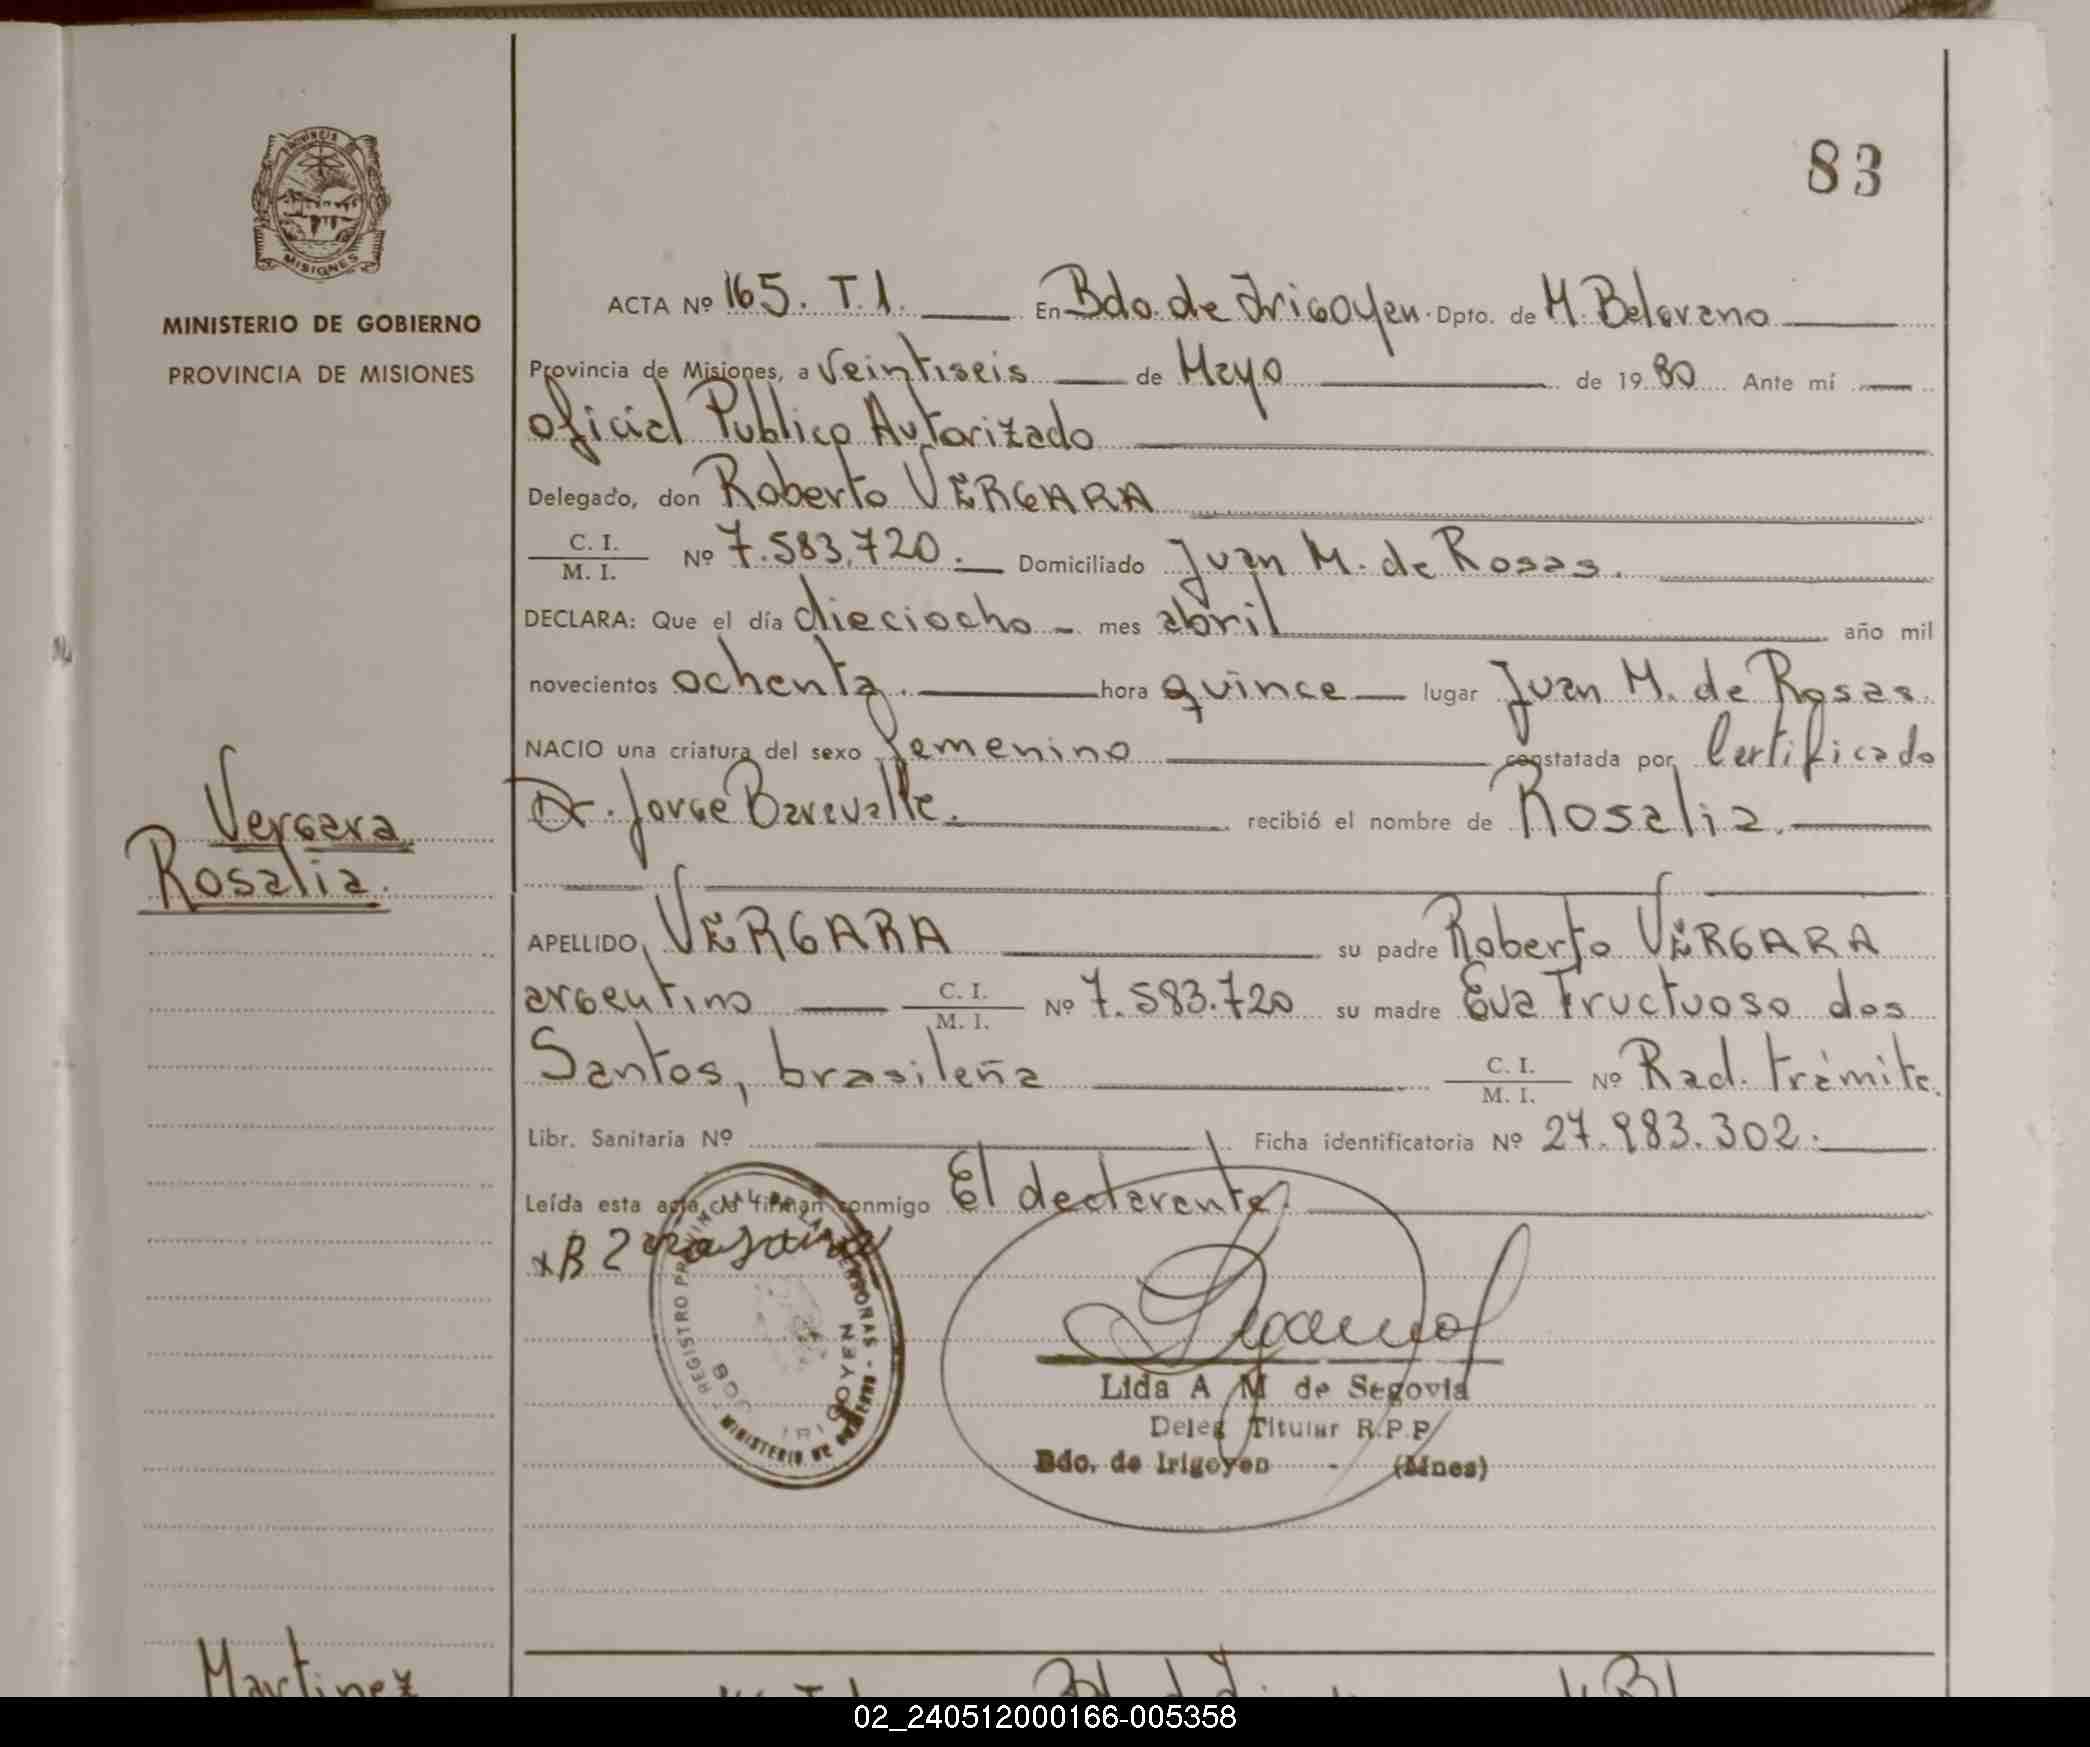 83
PROVINCIA
MISIONES
MINISTERIO DE GOBIERNO
PROVINCIA DE MISIONES
ACTA Nº 165. T.1. En Bdo. de Irigoyen. Dpto. de M. Belgrano
Provincia de Misiones, a Veintiseis de Mayo de 1980 Ante mí
oficial Publico Autorizado
Delegado, don Roberto VERGARA
C. I.
M. I. Nº 7.583.720. Domiciliado Juan M. de Rosas.
DECLARA: Que el día dieciocho mes abril año mil
novecientos ochenta. hora quince lugar Juan M. de Rosas.
NACIO una criatura del sexo femenino constatada por Certificado
Dr. Jorge recibió el nombre de Rosalia.
Vergara
Rosalia.
APELLIDO VERGARA su padre Roberto VERGARA
argentino C. I.
M. I. Nº 7.583.720 su madre Eva Fructuoso dos
Santos, brasileña C. I.
M. I. Nº Rad. trámite.
Libr. Sanitaria Nº Ficha identificatoria Nº 27.983.302.
Leída esta acta, la firman conmigo El declarante.
REGISTRO PROVINCIAL DE LAS PERSONAS - MINISTERIO DE GOBIERNO
IRIGOYEN
Lida A M de Segovia
Deleg Titular R.P.P
Bdo. de Irigoyen - (Mnes)
Martinez
02_240512000166-005358